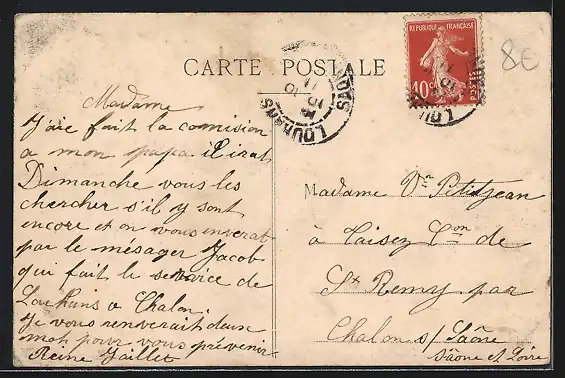 CARTE POSTALE
REPUBLIQUE FRANÇAISE
10c POSTES
8€
LOUHANS
LOUHANS
Madame
J'aie fait la comision
a mon papa il irat
Dimanche vous les
chercher s'il y sont
encore et on vous inverat
par le mésager Jacob
qui fait le service de
Louhans a Chalon.
Je vous renverait deux
mot pour vous prévenir
Reine Jaillet
Madame Vve Petitjean
à Taisez Con de
St Remy par
Chalon s/ Saône
Saône et Loire